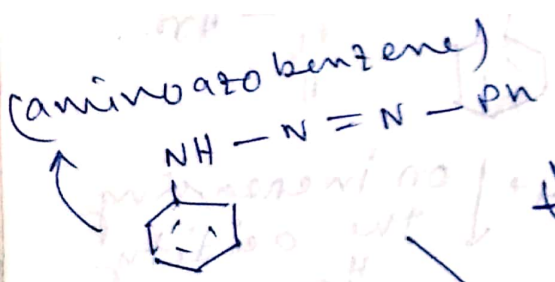 (aminoazobenzene)
NH — N = N — Ph